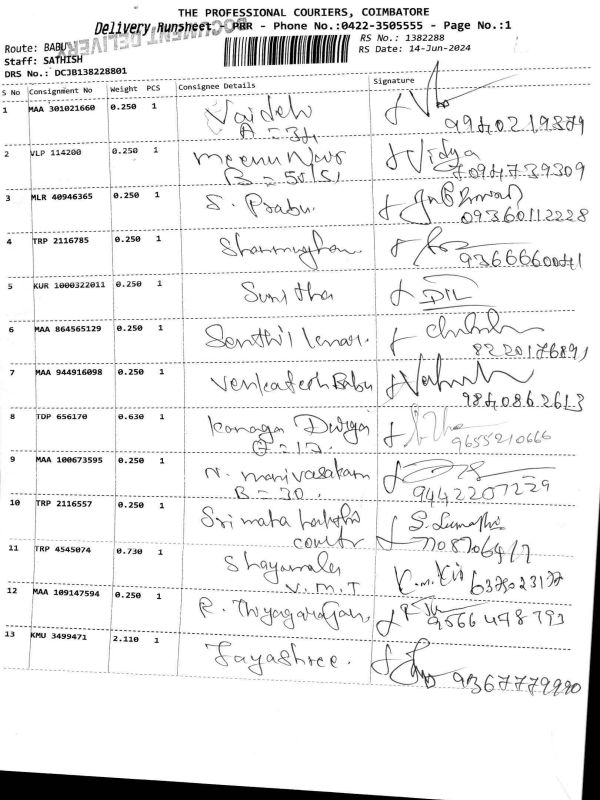 THE PROFESSIONAL COURIERS, COIMBATORE
Delivery Runsheet - PBR - Phone No.:0422-3505555 - Page No.:1
DOCUMENT DELIVERY
Route: BABU
RS No.: 1382288
Staff: SATHISH
RS Date: 14-Jun-2024
DRS No.: DCJB138228801
S No Consignment No Weight PCS Consignee Details Signature
1 MAA 301021660 0.250 1 Vaideh
A = 34
2 VLP 114200 0.250 1 Vidya
7094739309
3 MLR 40946365 0.250 1 S. Prabu.
09360112228
4 TRP 2116785 0.250 1
5 KUR 1000322011 0.250 1 Sunitha
6 MAA 864565129 0.250 1
8220176891
7 MAA 944916098 0.250 1 Venkatesh Babu
9840862613
8 TDP 656170 0.630 1 Kanaga Durga
9655210666
9 MAA 100673595 0.250 1 N. Manivasakam
B = 30. 9442207229
10 TRP 2116557 0.250 1 Sri maha lakshi S. Sumathi
11 TRP 4545074 0.730 1 Shayamala
V.M.T
12 MAA 109147594 0.250 1 R. Thiyagarajan,
9566478793
13 KMU 3499471 2.110 1 Jayashree.